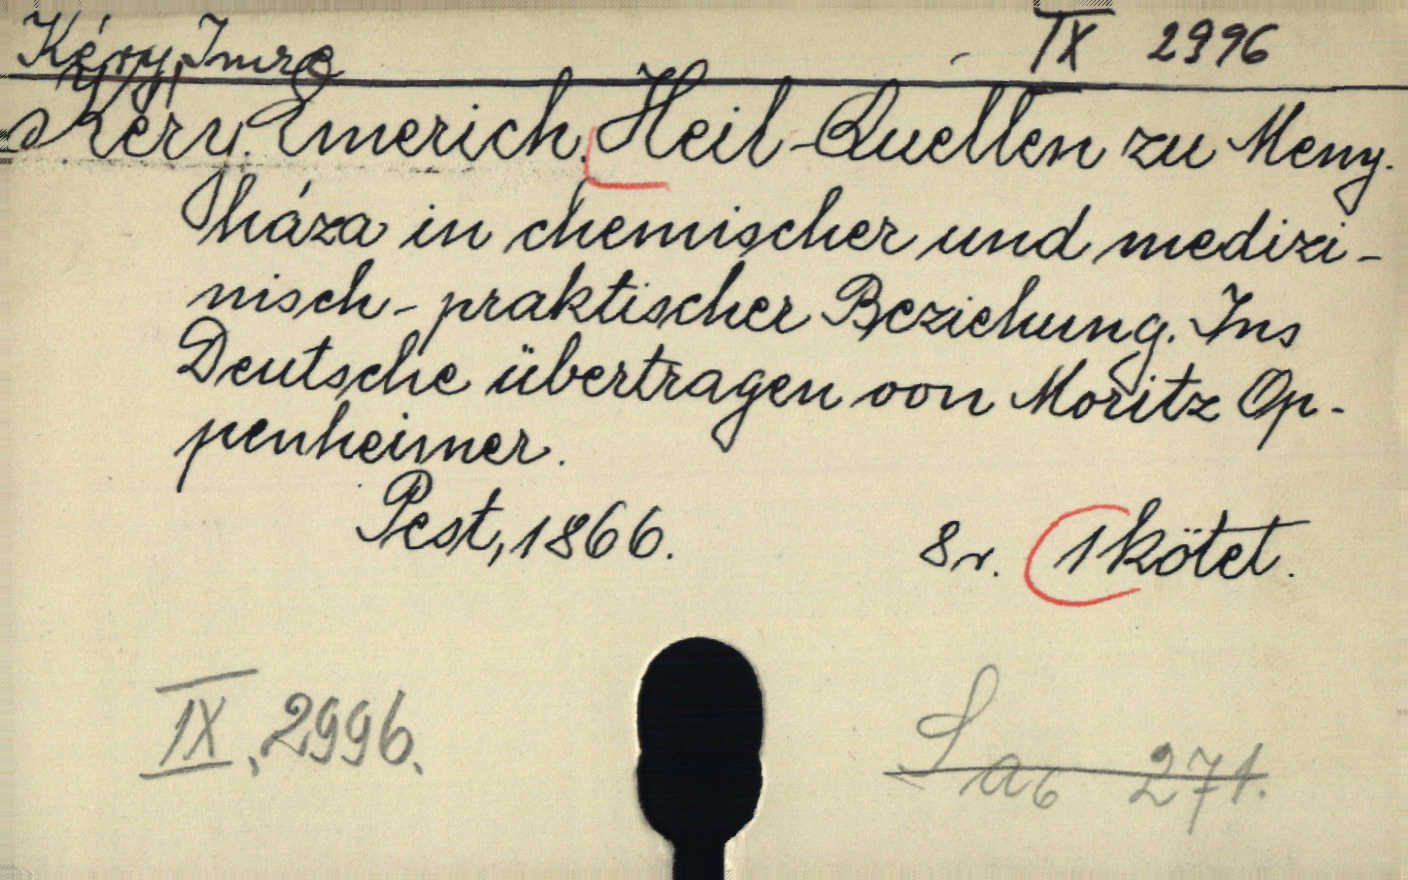 Kéry, Imre IX 2996
Kéry. Emerich. Heil-Quellen zu Meny.
háza in chemischer und medizi-
nisch-praktischer Beziehung. Ins
Deutsche übertragen von Moritz Op-
penheimer.
Pest, 1866. 8r. 1 kötet.
IX, 2996. 271.